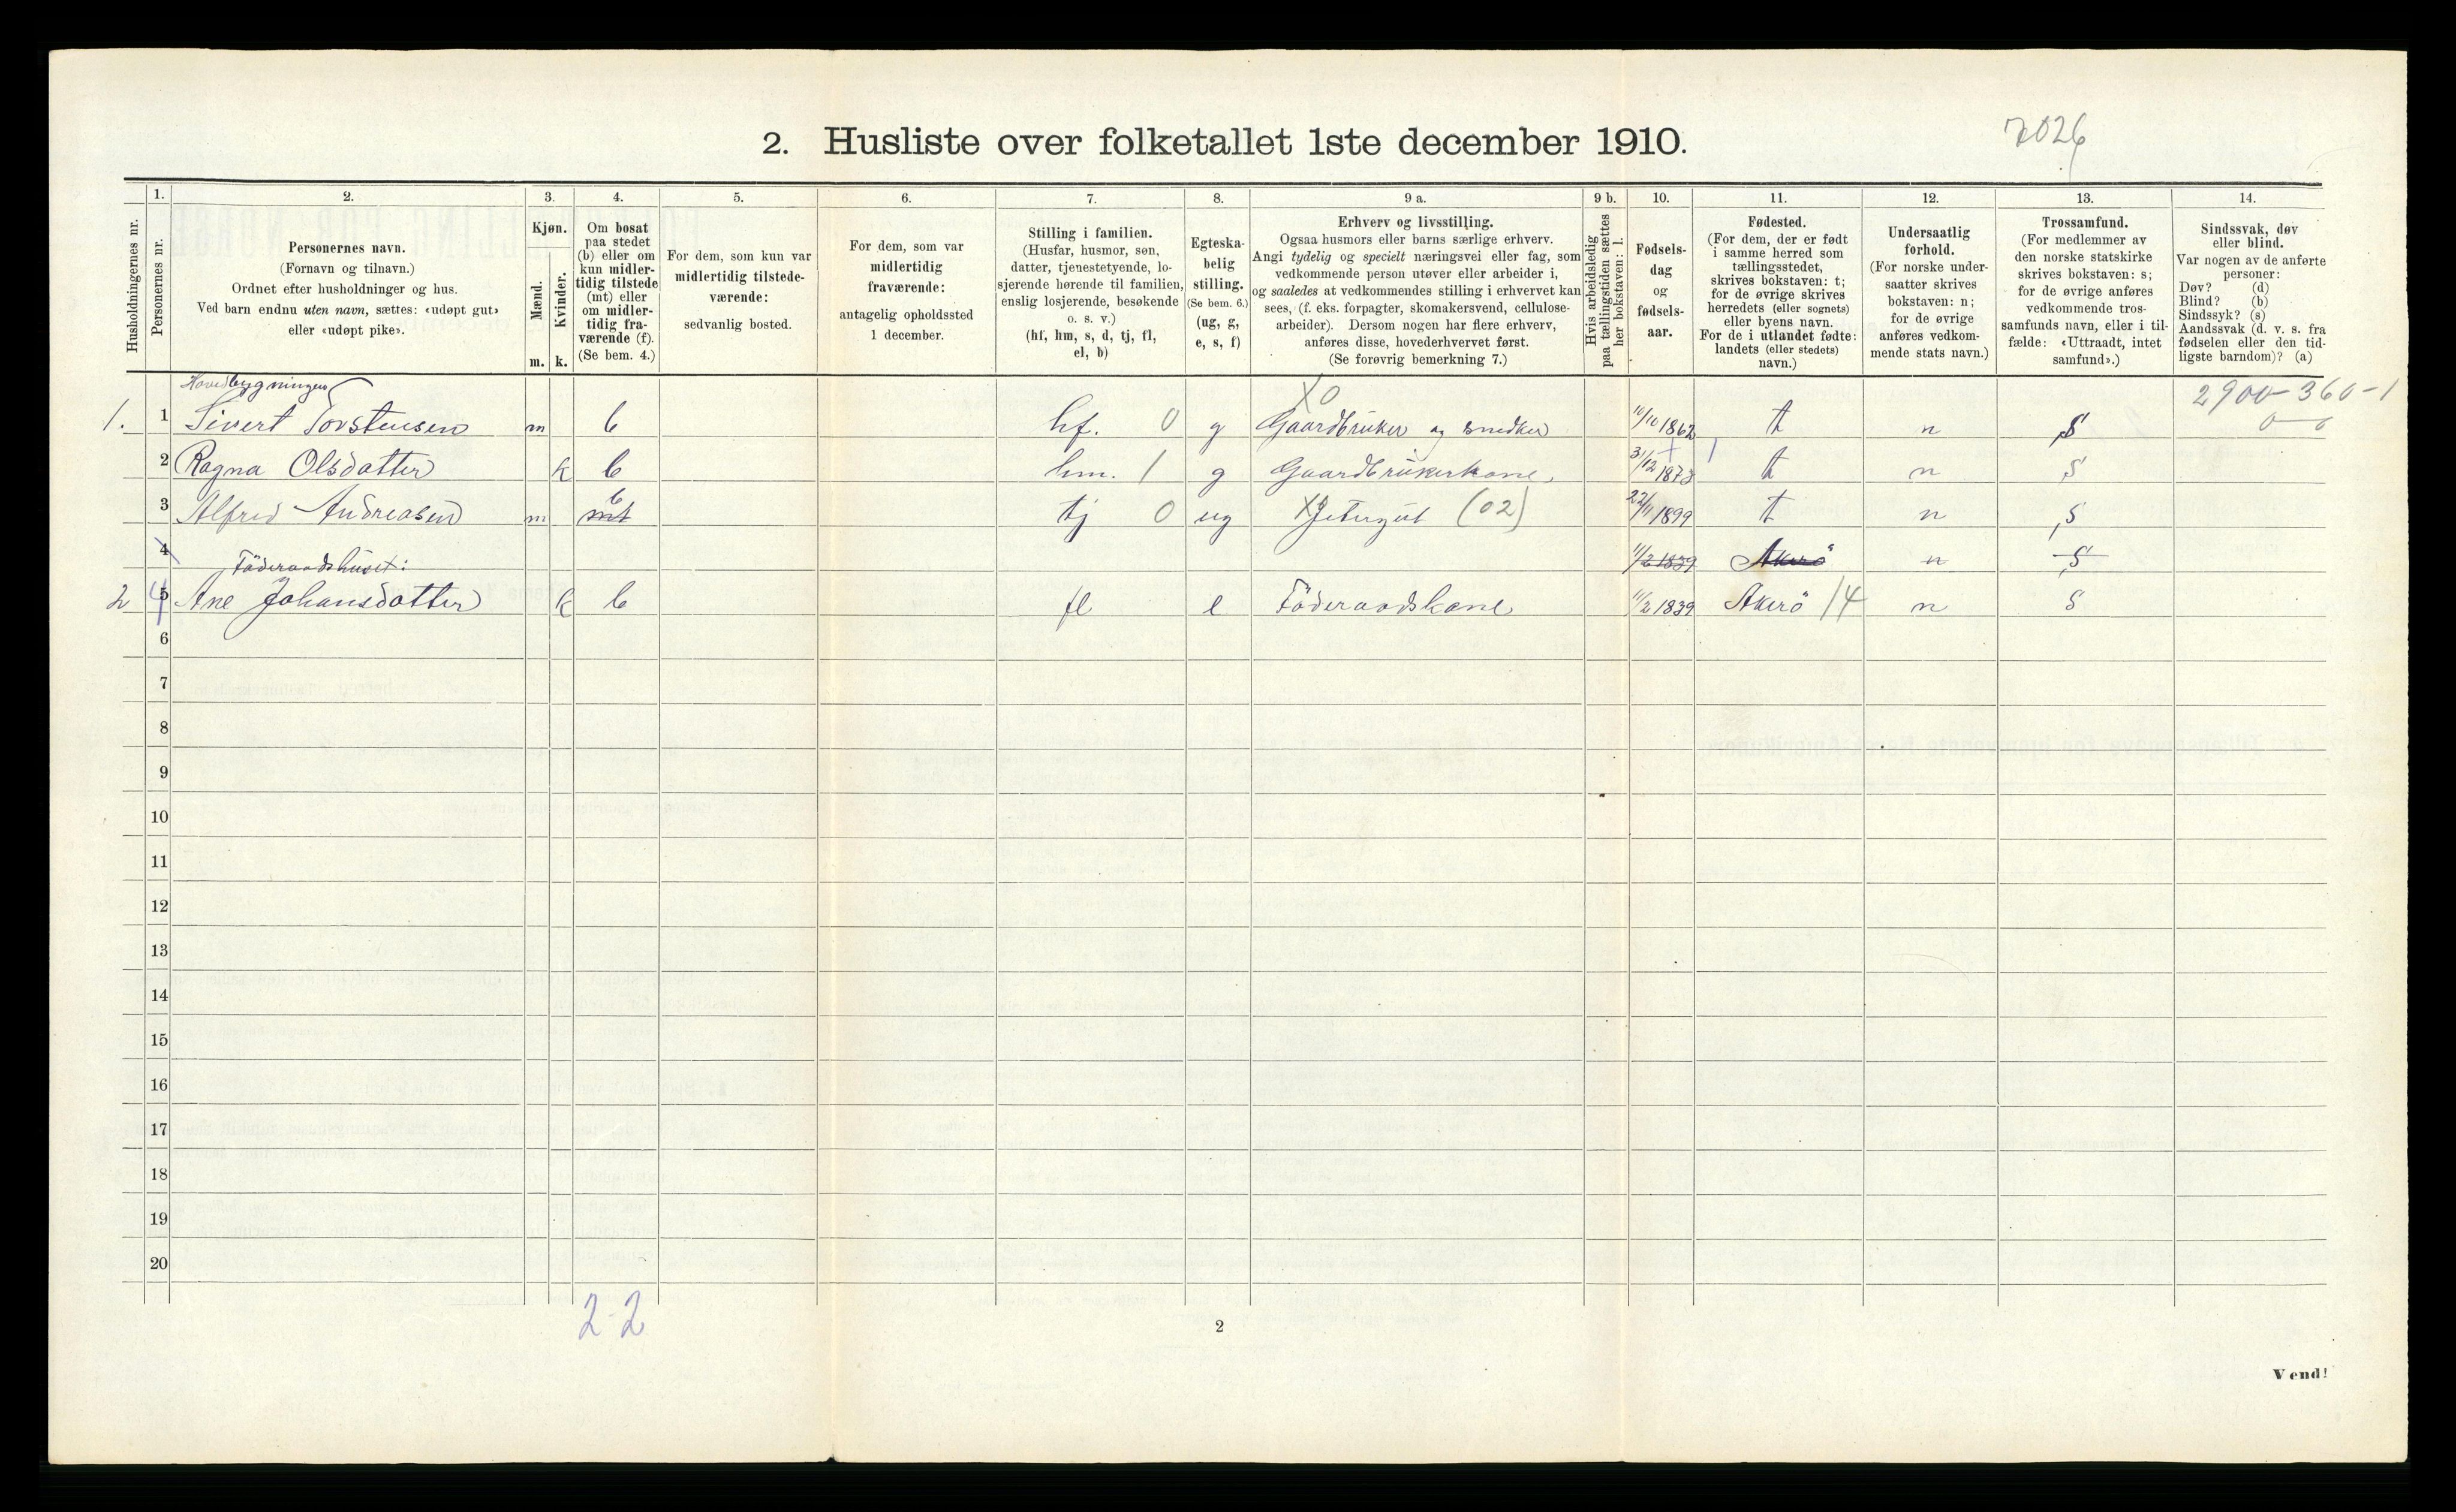 2. Husliste over folketallet 1ste december 1910.
2026
Husholdningernes nr.
1.
Personernes nr.
2.
Personernes navn.
(Fornavn og tilnavn.)
Ordnet efter husholdninger og hus.
Ved barn endnu uten navn, sættes: «udøpt gut»
eller «udøpt pike».
3.
Kjøn.
Mænd.
m.
Kvinder.
k.
4.
Om bosat
paa stedet
(b) eller om
kun midler-
tidig tilstede
(mt) eller
om midler-
tidig fra-
værende (f).
(Se bem. 4.)
5.
For dem, som kun var
midlertidig tilstede-
værende:
sedvanlig bosted.
6.
For dem, som var
midlertidig
fraværende:
antagelig opholdssted
1 december.
7.
Stilling i familien.
(Husfar, husmor, søn,
datter, tjenestetyende, lo-
sjerende hørende til familien,
enslig losjerende, besøkende
o. s. v.)
(hf, hm, s, d, tj, fl,
el, b)
8.
Egteska-
belig
stilling.
(Se bem. 6.)
(ug, g,
e, s, f)
9 a.
Erhverv og livsstilling.
Ogsaa husmors eller barns særlige erhverv.
Angi tydelig og specielt næringsvei eller fag, som
vedkommende person utøver eller arbeider i,
og saaledes at vedkommendes stilling i erhvervet kan
sees, (f. eks. forpagter, skomakersvend, cellulose-
arbeider). Dersom nogen har flere erhverv,
anføres disse, hovederhvervet først.
(Se forøvrig bemerkning 7.)
9 b.
Hvis arbeidsledig
paa tællingstiden sættes
her bokstaven: l.
10.
Fødsels-
dag
og
fødsels-
aar.
11.
Fødested.
(For dem, der er født
i samme herred som
tællingsstedet,
skrives bokstaven: t;
for de øvrige skrives
herredets (eller sognets)
eller byens navn.
For de i utlandet fødte:
landets (eller stedets)
navn.)
12.
Undersaatlig
forhold.
(For norske under-
saatter skrives
bokstaven: n;
for de øvrige
anføres vedkom-
mende stats navn.)
13.
Trossamfund.
(For medlemmer av
den norske statskirke
skrives bokstaven: s;
for de øvrige anføres
vedkommende tros-
samfunds navn, eller i til-
fælde: «Uttraadt, intet
samfund».)
14.
Sindssvak, døv
eller blind.
Var nogen av de anførte
personer:
Døv? (d)
Blind? (b)
Sindssyk? (s)
Aandssvak (d. v. s. fra
fødselen eller den tid-
ligste barndom)? (a)
Hovedbygningen
X0
2900-360-1
0-0
1. 1 Sivert Torstensen m b hf. 0 g Gaardbruker og snedker 10/10 1862 t n S
2 Ragna Olsdatter k b hm. 1 g Gaardbrukerkone 31/12 1873 t n S
b
3 Alfred Andreasen m mt tj 0 ug X Jetergut (02) 22/11 1899 t n S
4 Föderaadshuset: 11/2 1839 Akerö n S
2 5 4 Ane Johansdatter k b fl e Föderaadskone 11/2 1839 Akerö 14 n S
6
7
8
9
10
11
12
13
14
15
16
17
18
19
20
2-2
2
Vend!